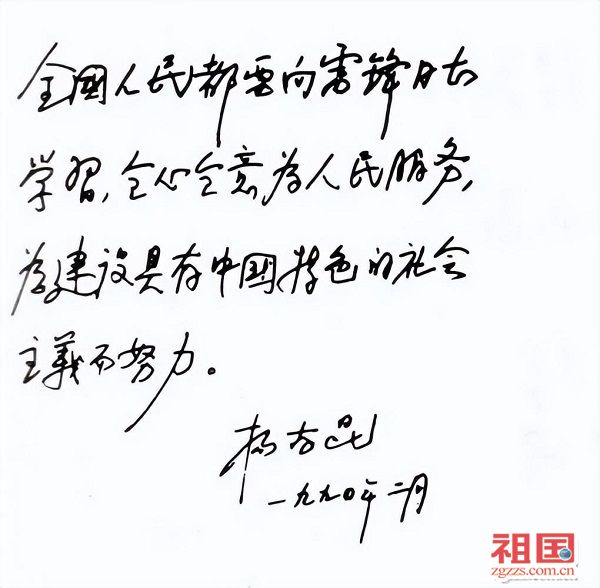 全國人民都要向雷鋒同志
学習,全心全意为人民服务,
为建设具有中國特色的社会
主義而努力。
杨尚昆
一九九〇年二月
祖国
zgzzs.com.cn